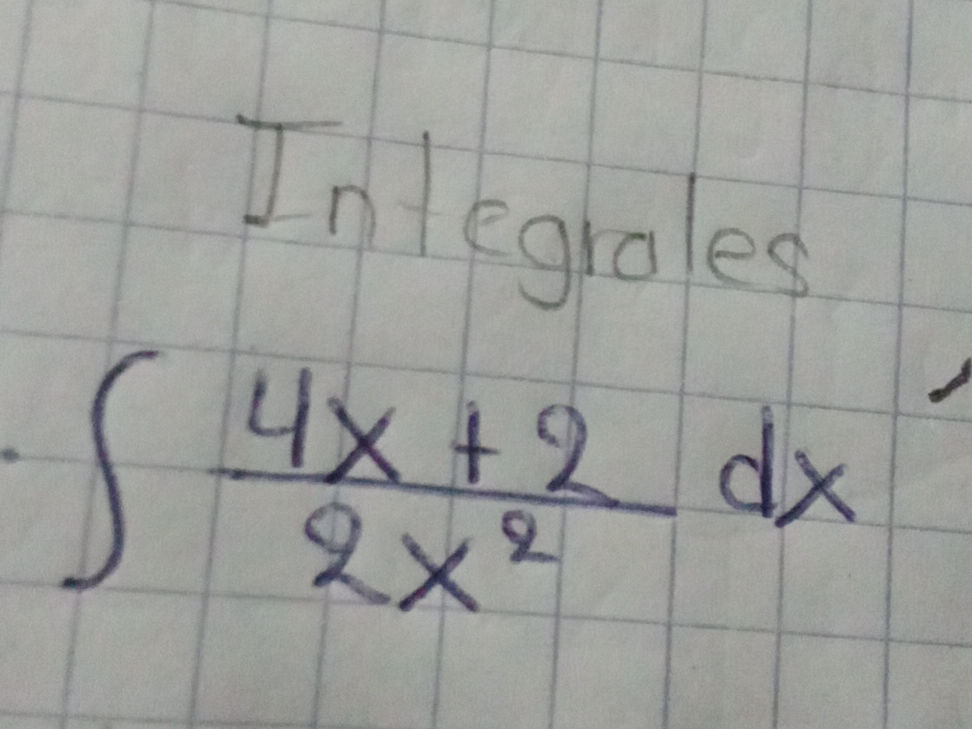 Integrales
∫ (4x + 2)/(2x²) dx